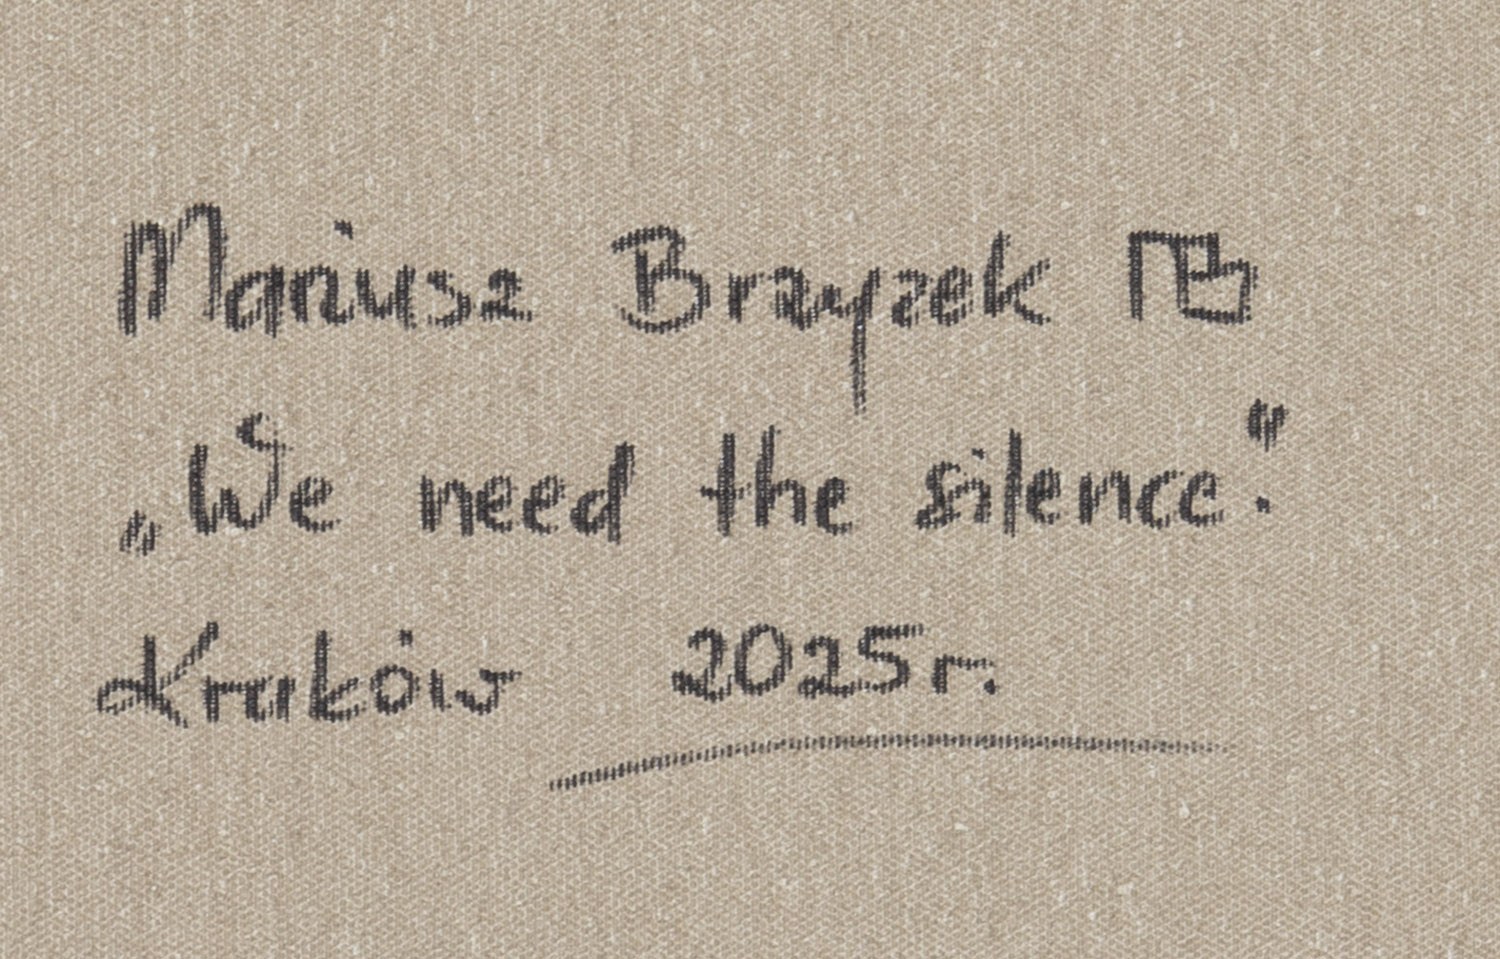 Mariusz Brzyzek
„We need the silence."
Kraków 2025 r.